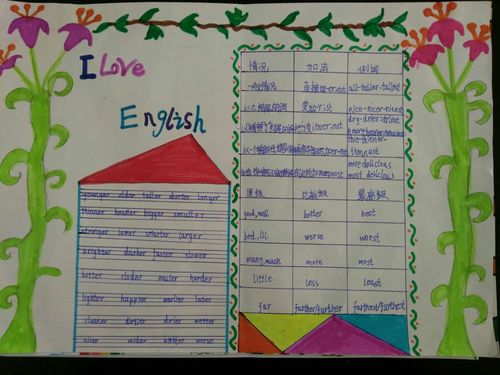 I Love
English
younger older taller shorter longer
thinner heavier bigger smaller
stronger lower smarter larger
brighter darker faster slower
hotter colder easier harder
lighter happier earlier later
cleaner dirtier drier wetter
nicer wider better worse
情况 加法 例词
一般情况 直接加er-est tall-taller-tallest
nice-nicer-nicest
dry-drier-driest
thin-thinner-
thinnest
more delicious
most delicious
原级 比较级 最高级
good,well better best
bad,ill worse worst
many,much more most
little less least
far farther/further farthest/furthest